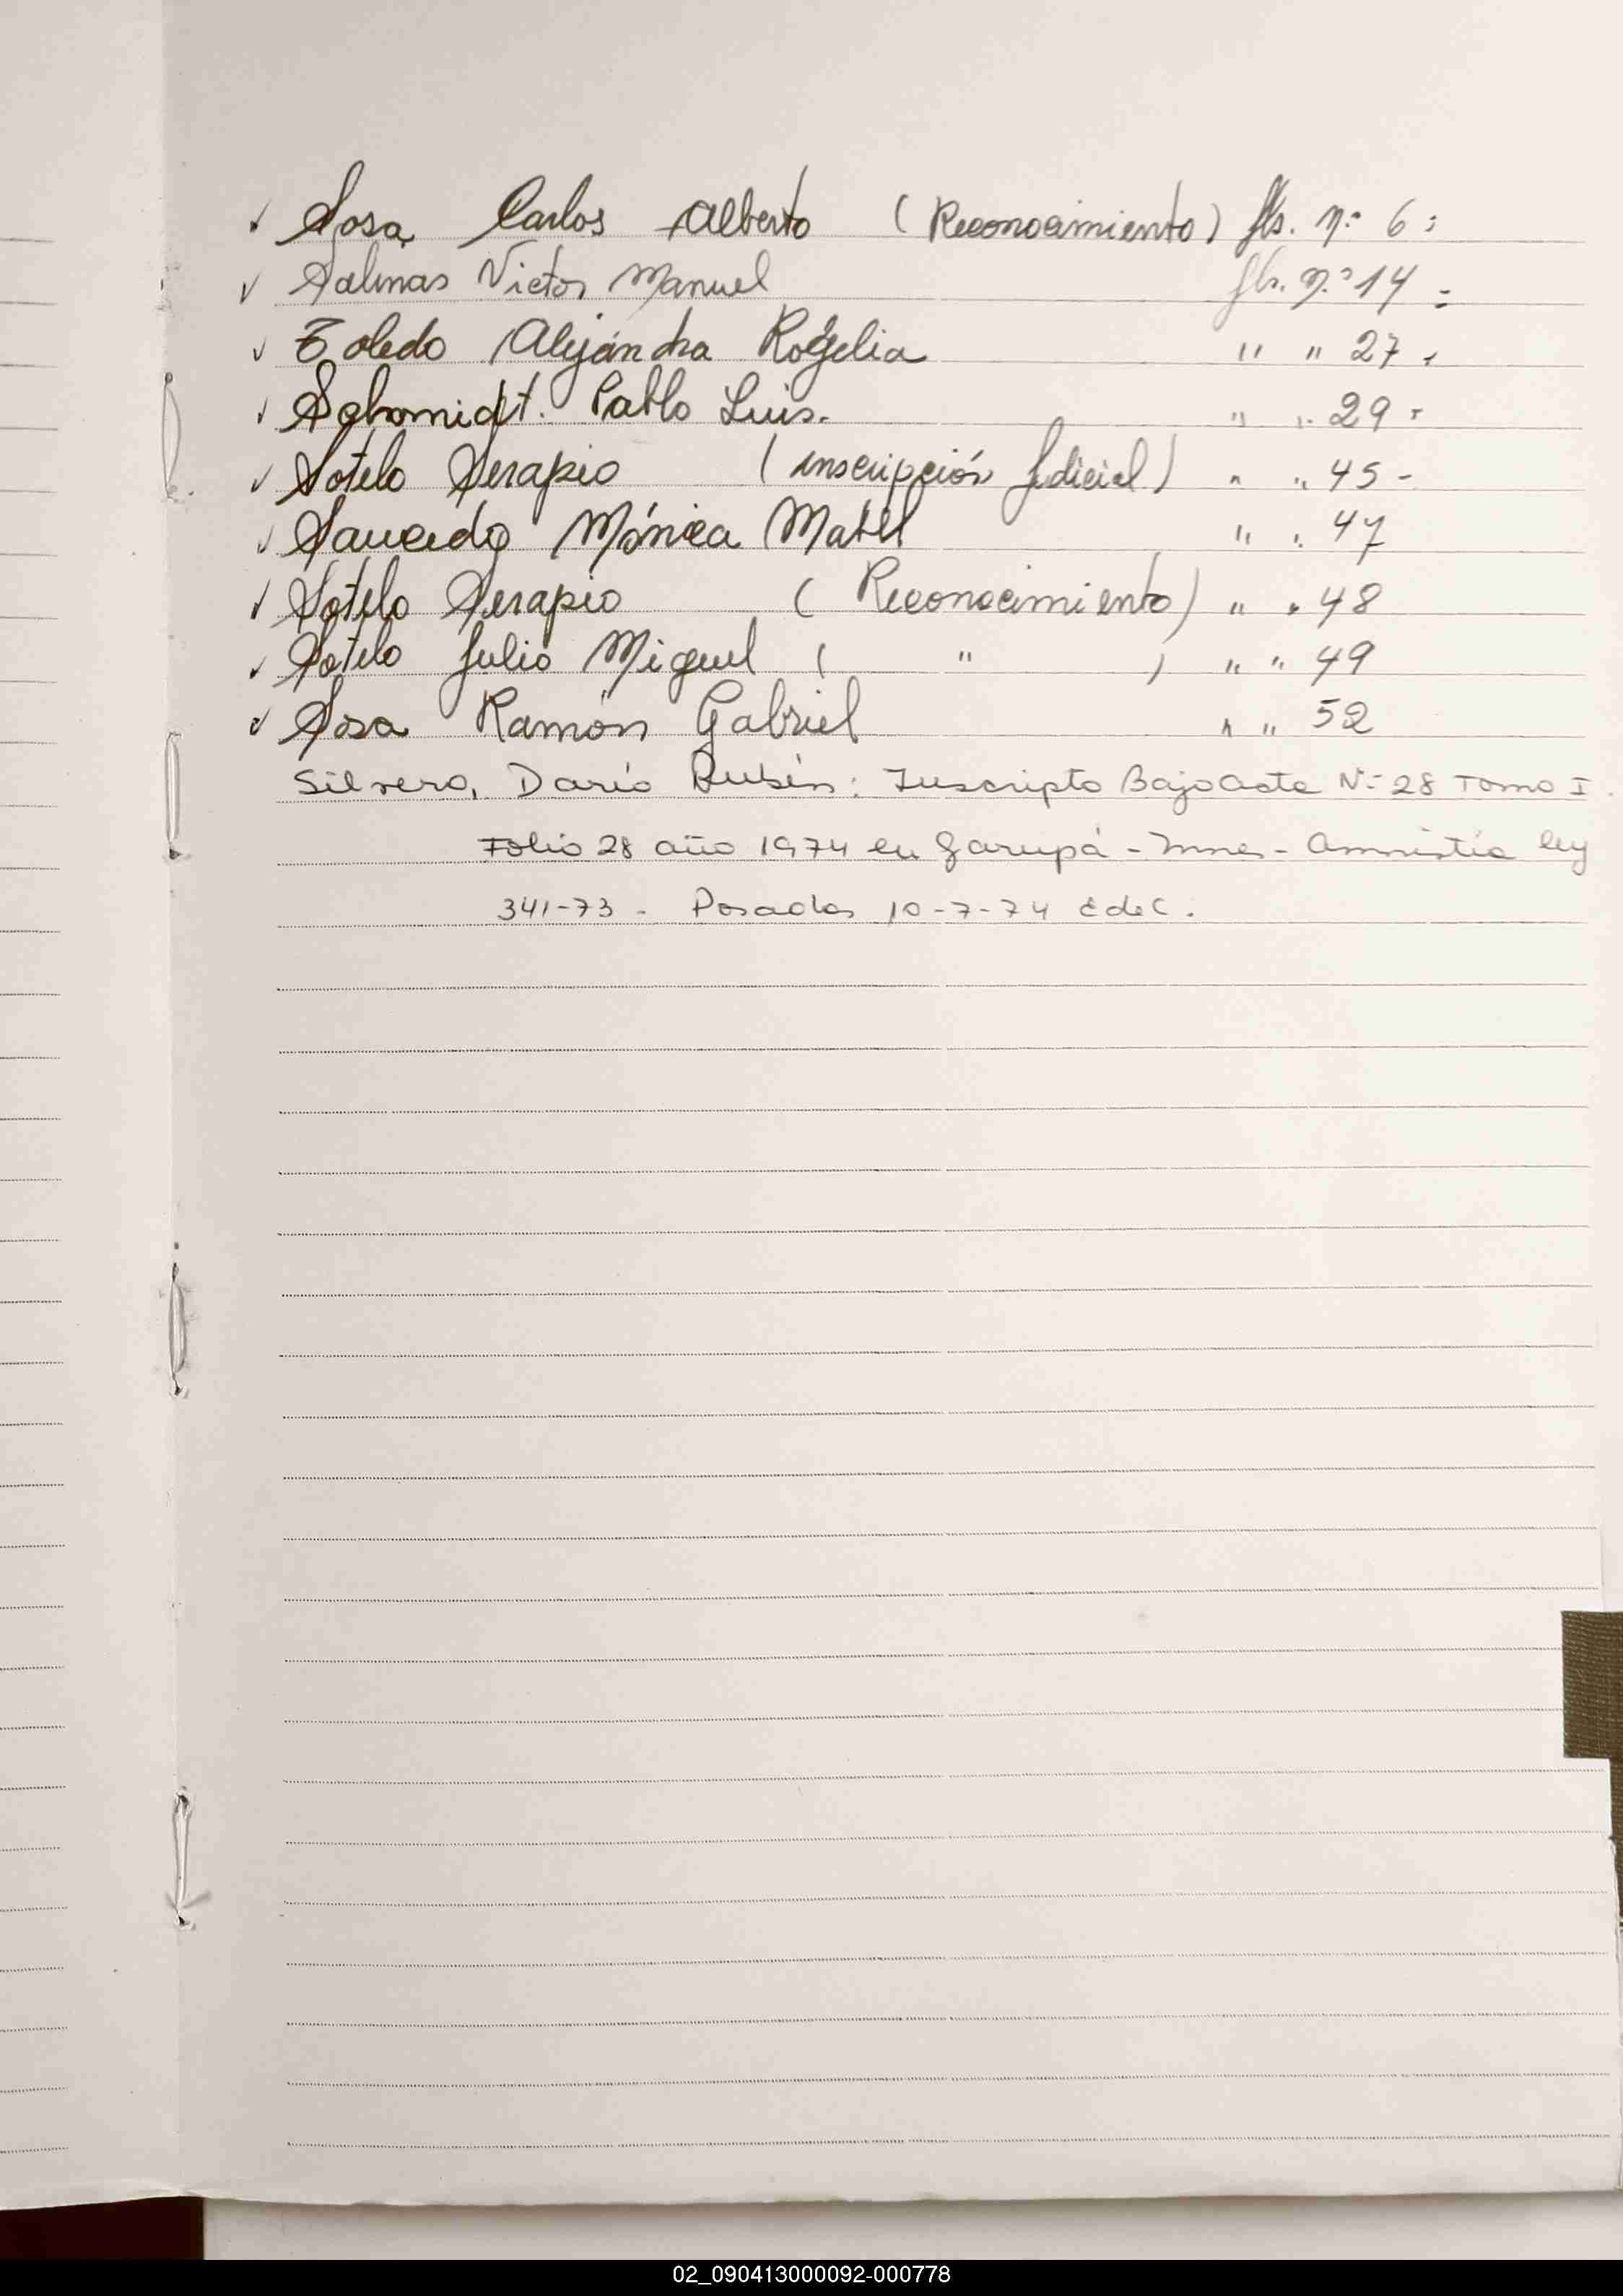 ✓ Sosa, Carlos Alberto (Reconocimiento) fls. n.º 6 :
✓ Salinas Victor Manuel fls. n.º 14 =
✓ Toledo Alejándra Rogelia " " 27 .
✓ Schomidt. Pablo Luis. " " 29 -
✓ Sotelo Serapio (inscripción Judicial) " " 45 -
✓ Saucedo Mónica Mabel " " 47
✓ Sotelo Serapio (Reconocimiento) " " 48
✓ Sotelo Julio Miguel ( " ) " " 49
✓ Sosa Ramón Gabriel " " 52
Silvero, Darío Rubén: Inscripto Bajo acta Nº 28 Tomo I.
Folio 28 año 1974 en Garupá - Mnes - Amnistía ley
341-73 - Posadas 10-7-74
02_090413000092-000778